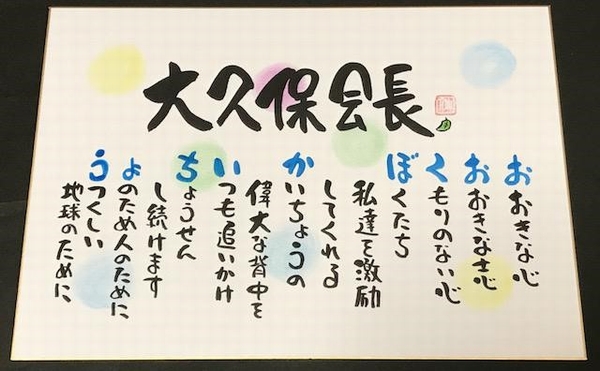 大久保会長
おおきな心
おおきな志
くもりのない心
ぼくたち
私達を激励
してくれる
かいちょうの
偉大な背中を
いつも追いかけ
ちょうせん
し続けます
よのため人のために
うつくしい
地球のために